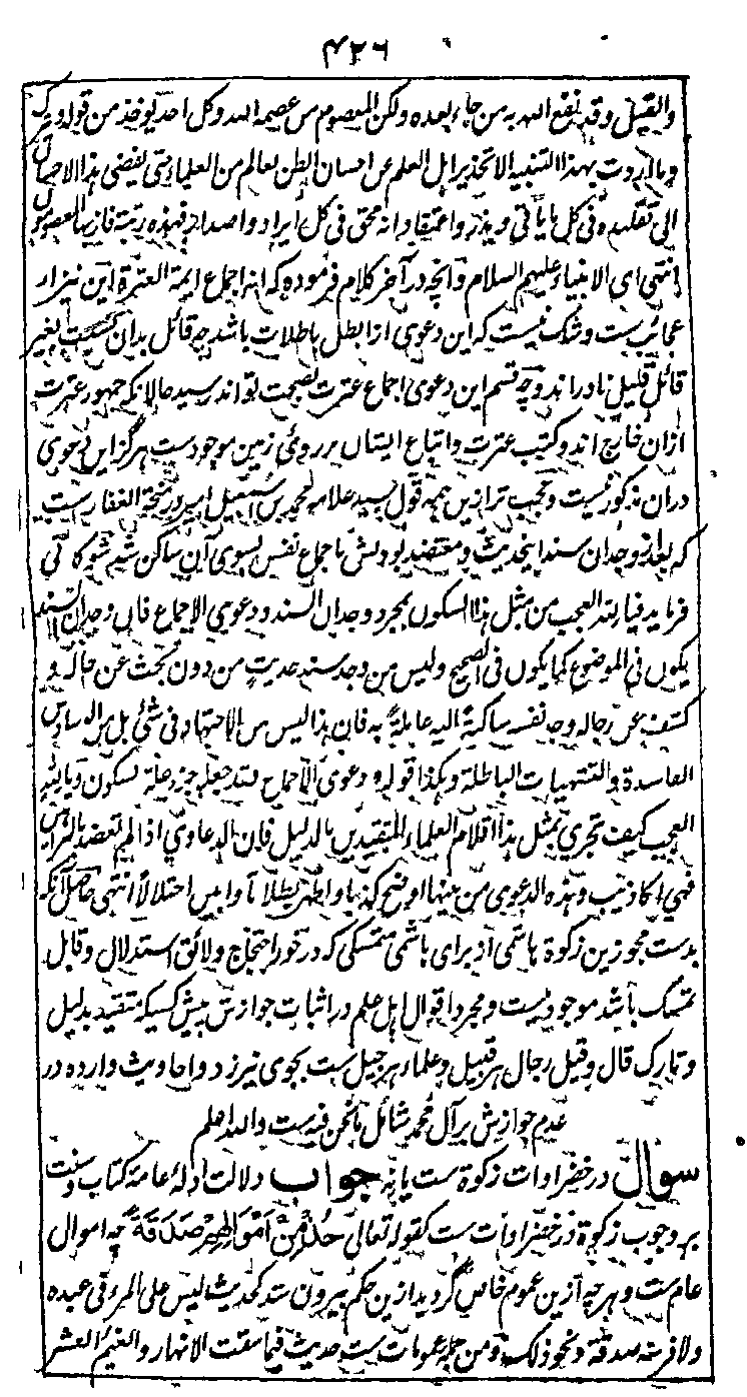 ۴۲۶
والقیل وقد نفع اللہ بہ من جاء بعدہ ولکن المعصوم من عصمہ اللہ وکل احد یوخذ من قولہ ویترک
وما اردت بہذا التنبیہ الا تحذیر اہل العلم عن احسان الظن لعالم من العلماء حتی یفضی ہذا الاحسان
الی تقلیدہ فی کل ما یاتی ویذر واعتقاد انہ محق فی کل ایراد واصدار فہذہ رتبۃ فاز بہا المعصومون
انتہی ای الانبیاء علیہم السلام وآنچہ در آخر کلام فرمودہ کہ انہ اجماع ایمۃ العترۃ این نیز از
عجائب ست وشک نیست کہ این دعوی از ابطل باطلات باشد چہ قائل بدان نسبت بغیر
قائل قلیل نادر اند وچہ قسم این دعوی اجماع عترت بصحت تواند رسید حالانکہ جمہور عترت
ازان خارج اند وکتب عترت واتباع ایشان بر روی زمین موجود ست ہرگز این دعوی
دران مذکور نیست وعجب تر ازین ہمہ قول سید علامہ محمد بن اسمعیل امیر در منحۃ الغفار ست
کہ بعد از وجدان سند این حدیث ومعتضد بودنش باجماع نفس بسوی آن ساکن شد شوکانی
فرماید فیا للہ العجب من مثل ہذا السکون بمجرد وجدان السند ودعوی الاجماع فان وجدان السند
یکون فی الموضوع کما یکون فی الصحیح ولیس من وجد سند حدیث من دون بحث عن حالہ و
کشف عن رجالہ وجد نفسہ ساکنۃ الیہ عاملۃ بہ فان ہذا لیس من الاجتہاد فی شئ بل من الوساوس
الفاسدۃ والتشہیات الباطلۃ وہکذا قولہ ودعوی الاجماع لقد جعلہ جزء علۃ لسکون ویا للہ
العجب کیف تجری بمثل ہذا اقلام العلماء المتقیدین بالدلیل فان الدعاوی اذا لم تعضد بالبراہین
فہی اکاذیب وہذہ الدعوی من بینہا اوضح کذبا واظہر بطلانا وابین اختلالا انتہی حاصل آنکہ
بدست مجوزین زکوۃ ہاشمی از برای ہاشمی متمسکی کہ درخور احتجاج ولائق استدلال وقابل
تمسک باشد موجود نیست ومجرد اقوال اہل علم در اثبات جوازش پیش کسیکہ متقید بدلیل
وتارک قال وقیل رجال ہر قبیل وعلماء ہر جیل ست بجوی نیرزد واحادیث واردہ در
عدم جوازش بر آل محمد شامل مانحن فیہ ست واللہ اعلم
سوال در خضراوات زکوۃ ست یا نہ جواب دلالت ادلۂ عامۂ کتاب وسنت
بر وجوب زکوۃ در خضراوات ست کقولہ تعالی خُذْ مِنْ اَمْوَالِهِمْ صَدَقَةً چہ اموال
عام ست وہرچہ ازین عموم خاص گردید ازین حکم بیرون شد کحدیث لیس علی المرء فی عبدہ
ولا فرسہ صدقۃ ونحو ذلک ومن جملہ عمومات ست حدیث فیما سقت الانہار والغیم العشر